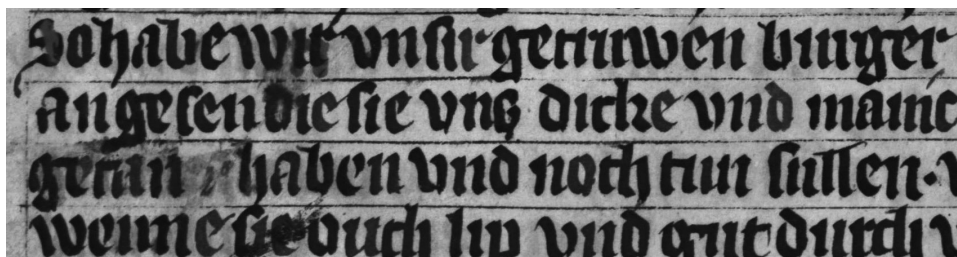 So habe wir vnsir getruwen burger
an gesen die sie vns dicke vnd manic
getan haben vnd noch tun sullen. v
wenne sie ouch lip vnd gut durch v